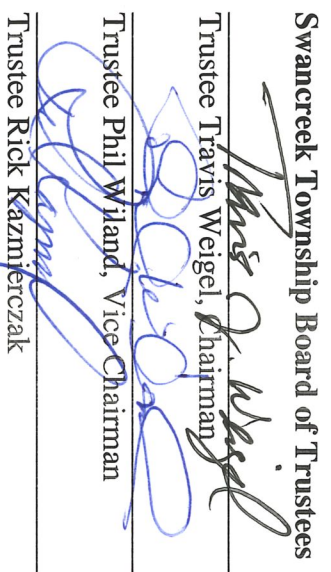 Swancreek Township Board of Trustees
Travis J. Weigel
Trustee Travis Weigel, Chairman
Trustee Phil Wiland, Vice Chairman
Trustee Rick Kazmierczak